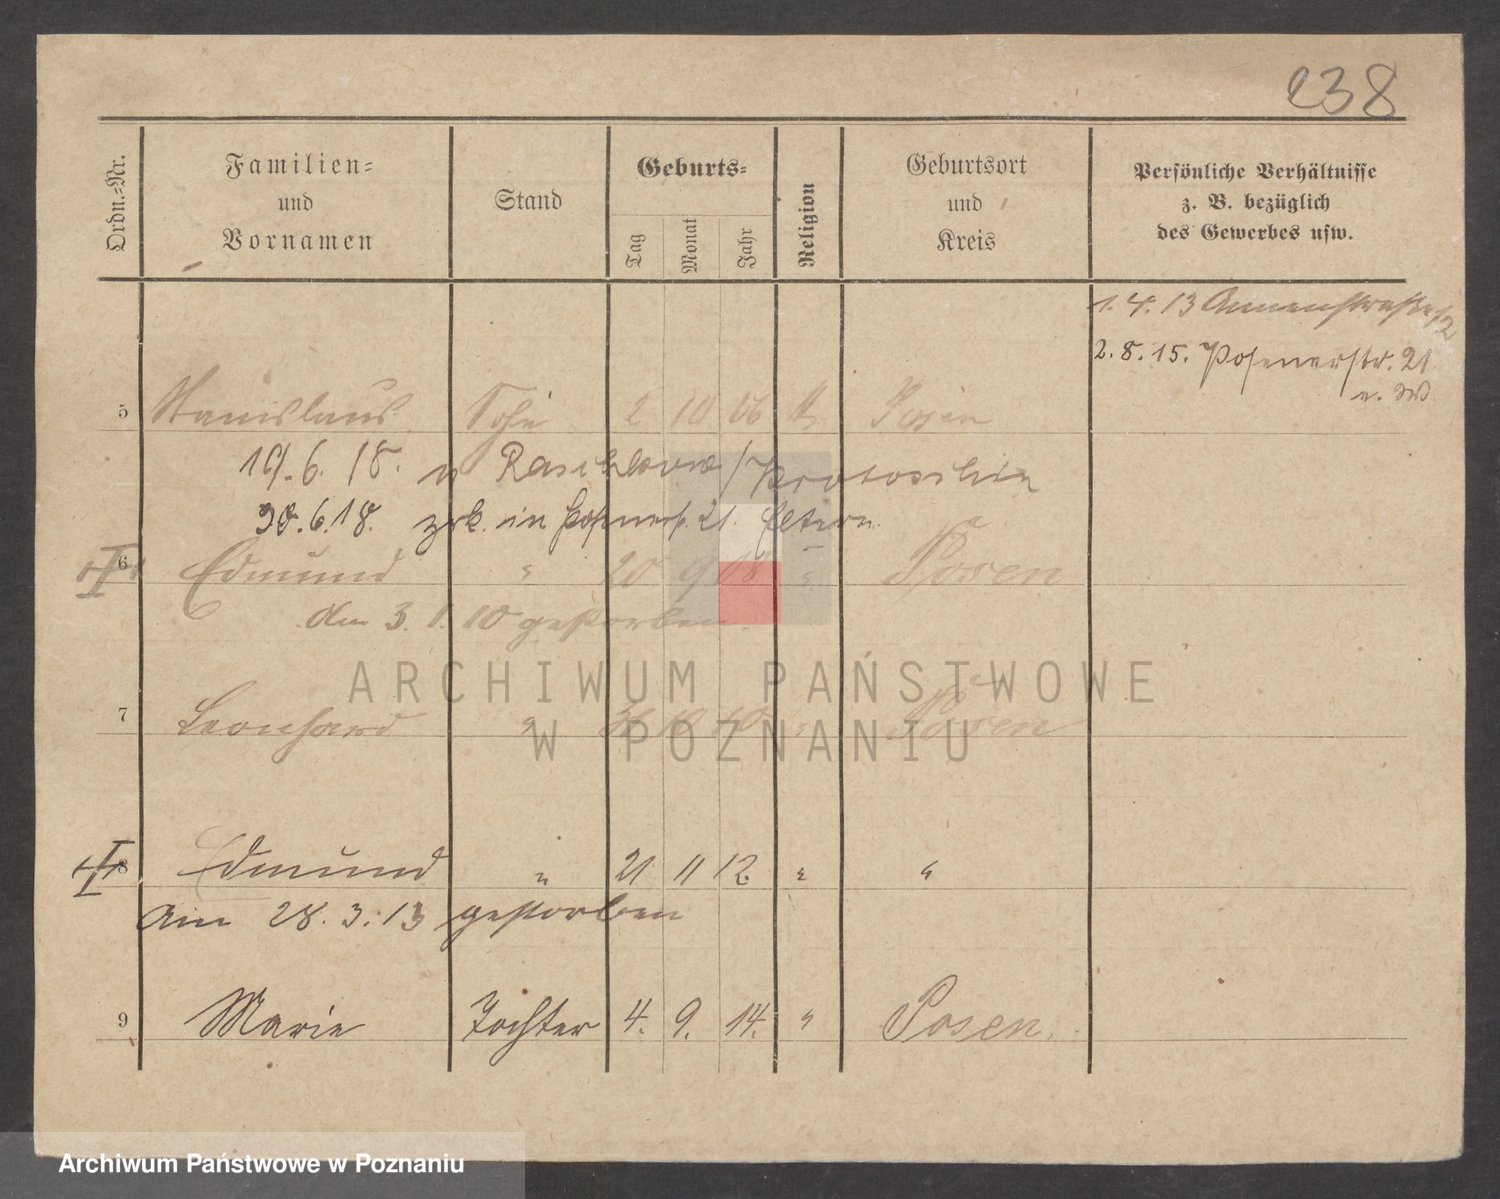 238
Ordn.-Nr.
Familien-
und
Vornamen
Stand
Geburts-
Tag
Monat
Jahr
Religion
Geburtsort
und
Kreis
Persönliche Verhältnisse
z. B. bezüglich
des Gewerbes usw.
1.4.13 Annenstraße
2.8.15. Posenerstr. 21
5 Stanislaus Sohn 2 10 06 Posen
19.6.18. n Raschkow/Krotoschin
30.6.18. zrk. in Posenerstr. 21. Eltern
6 Edmund " 20 9 08 " Posen
den 3.1.10 gestorben.
7 Leonhard " 10 10 " Posen
8 Edmund " 21 11 12. " "
Am 28.3.13 gestorben
9 Marie Tochter 4. 9. 14. " Posen.
ARCHIWUM PAŃSTWOWE
W POZNANIU
Archiwum Państwowe w Poznaniu